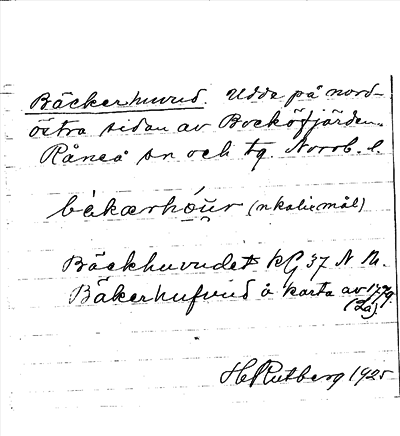 Bäckerhuvud. Udde på nord-
östra sidan av Bocköfjärden.
Råneå sn och tg. Norrb. l.
bèkærhóur (nkalixmål)
Bäckhuvudet kG 37 N Th.
Bäkerhufvud å karta av 1779.
(La)
H Rutberg 1925